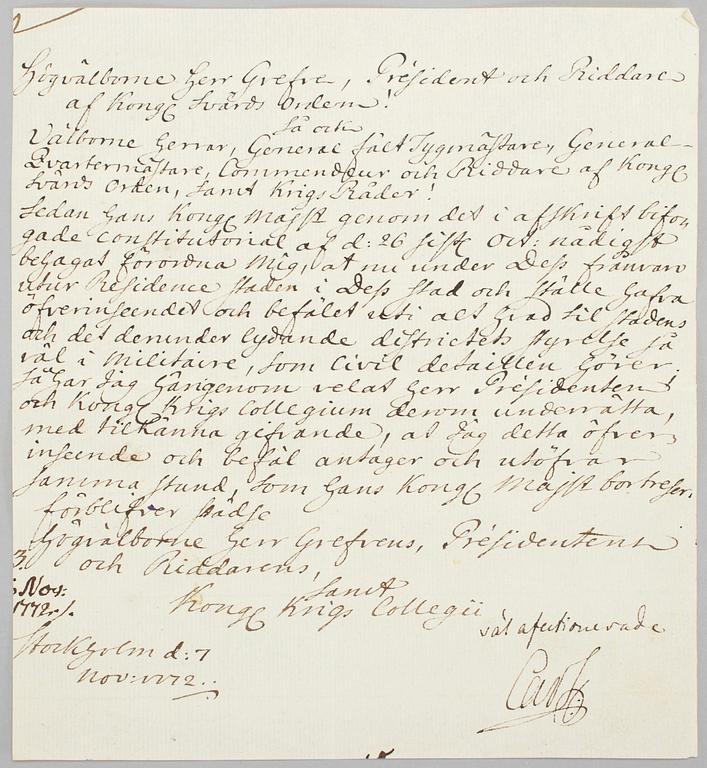 Högvälborne Herr Grefve, Président och Riddare
af Kongl Svärds Orden!
Så ock
Välborne Herrar, General fält Tygmästare, General-
Qvartermästare, Commendeur och Riddare af Kongl
Svärds Orden, samt Krigs Råder!
Sedan Hans Kongl Majst genom det i afskrift bifo-
gade Constitutorial af d: 26 sistl Oct: nådigst
behagat förordna Mig, at nu under Dess frånvaro
utur Residence staden i Dess stad och ställe hafva
öfverinseendet och befälet uti alt hvad til stadens
och det derunder lydande districtets styrelse så
väl i Militaire, som Civil detaillen hörer;
Så har Jag härigenom velat Herr Présidenten
och Kongl Krigs Collegium derom underrätta,
med tilkänna gifvande, at Jag detta öfver-
inseende och befäl antager och utöfvar
samma stund, som Hans Kongl Majst bortreser.
förblifver städse
Högvälborne Herr Grefvens, Présidentens
och Riddarens,
samt
Kongl Krigs Collegii
väl afectionerade
Carl
Nov:
1772
Stockholm d: 7
Nov: 1772.